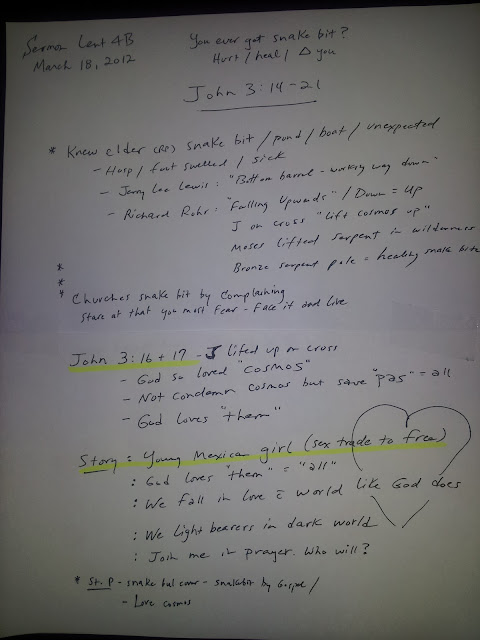 Sermon Lent 4B
March 18, 2012
You ever get snake bit?
Hurt / heal / Δ you
John 3:14-21
* Knew elder (RR) snake bit / pond / boat / unexpected
- Hosp / foot swelled / sick
- Jerry Lee Lewis: "Bottom barrel - working way down"
- Richard Rohr: "Falling Upwards" / Down = Up
J on cross "lift cosmos up"
Moses lifted serpent in wilderness
Bronze serpent pole = healing snake bite
*
*
* Churches snake bit by complaining
Stare at that you most fear - Face it and live
John 3:16 + 17 - J lifted up on cross
- God so loved "cosmos"
- Not condemn cosmos but save "pas" = all
- God loves "them"
Story: Young Mexican girl (sex trade to free)
: God loves "them" = "all"
: We fall in love c̄ world like God does
: We light bearers in dark world
: Join me in prayer. Who will?
* St. P - snake - snakebit by Gospel /
- Love cosmos